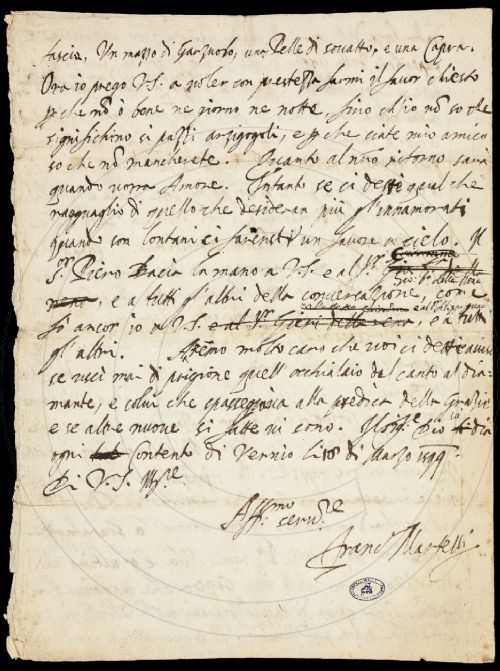 fascio, Un mazzo di Garzuolo, una Pelle di sovatto, e una Capra.
Ora io prego V.S. a voler con prestezza farmi il favor chiesto
perche nõ ò bene ne giorno ne notte, fino ch'io nõ so che
significhino si pazzi arzigogoli, e perche siate mio amico
so che nõ mancherete. Quanto al mio ritorno sarà
quando vorra Amore. Intanto se ci deste qualche
ragguaglio di quello che desideran più gl'innamorati
quando son lontani ci fareste un favore a cielo. Il
S.r Piero Bacia la mano a V.S. e al S.r
e a tutti gl'altri della conversazione, come
fò ancor io a V.S. e al S.r e a tutti
gl'altri. molto caro che voi ci deste avviso
se uscì mai di prigione quell'occhialaio dal canto al dia-
mante, e colui che spasseggiava alla predica delle Grazie
e se altre nuove si fatte vi sono. Dio dia
ogni contento di Vernio li di Marzo 1599
Di V.S.
Aff.mo ser.re
Franc.o Martelli